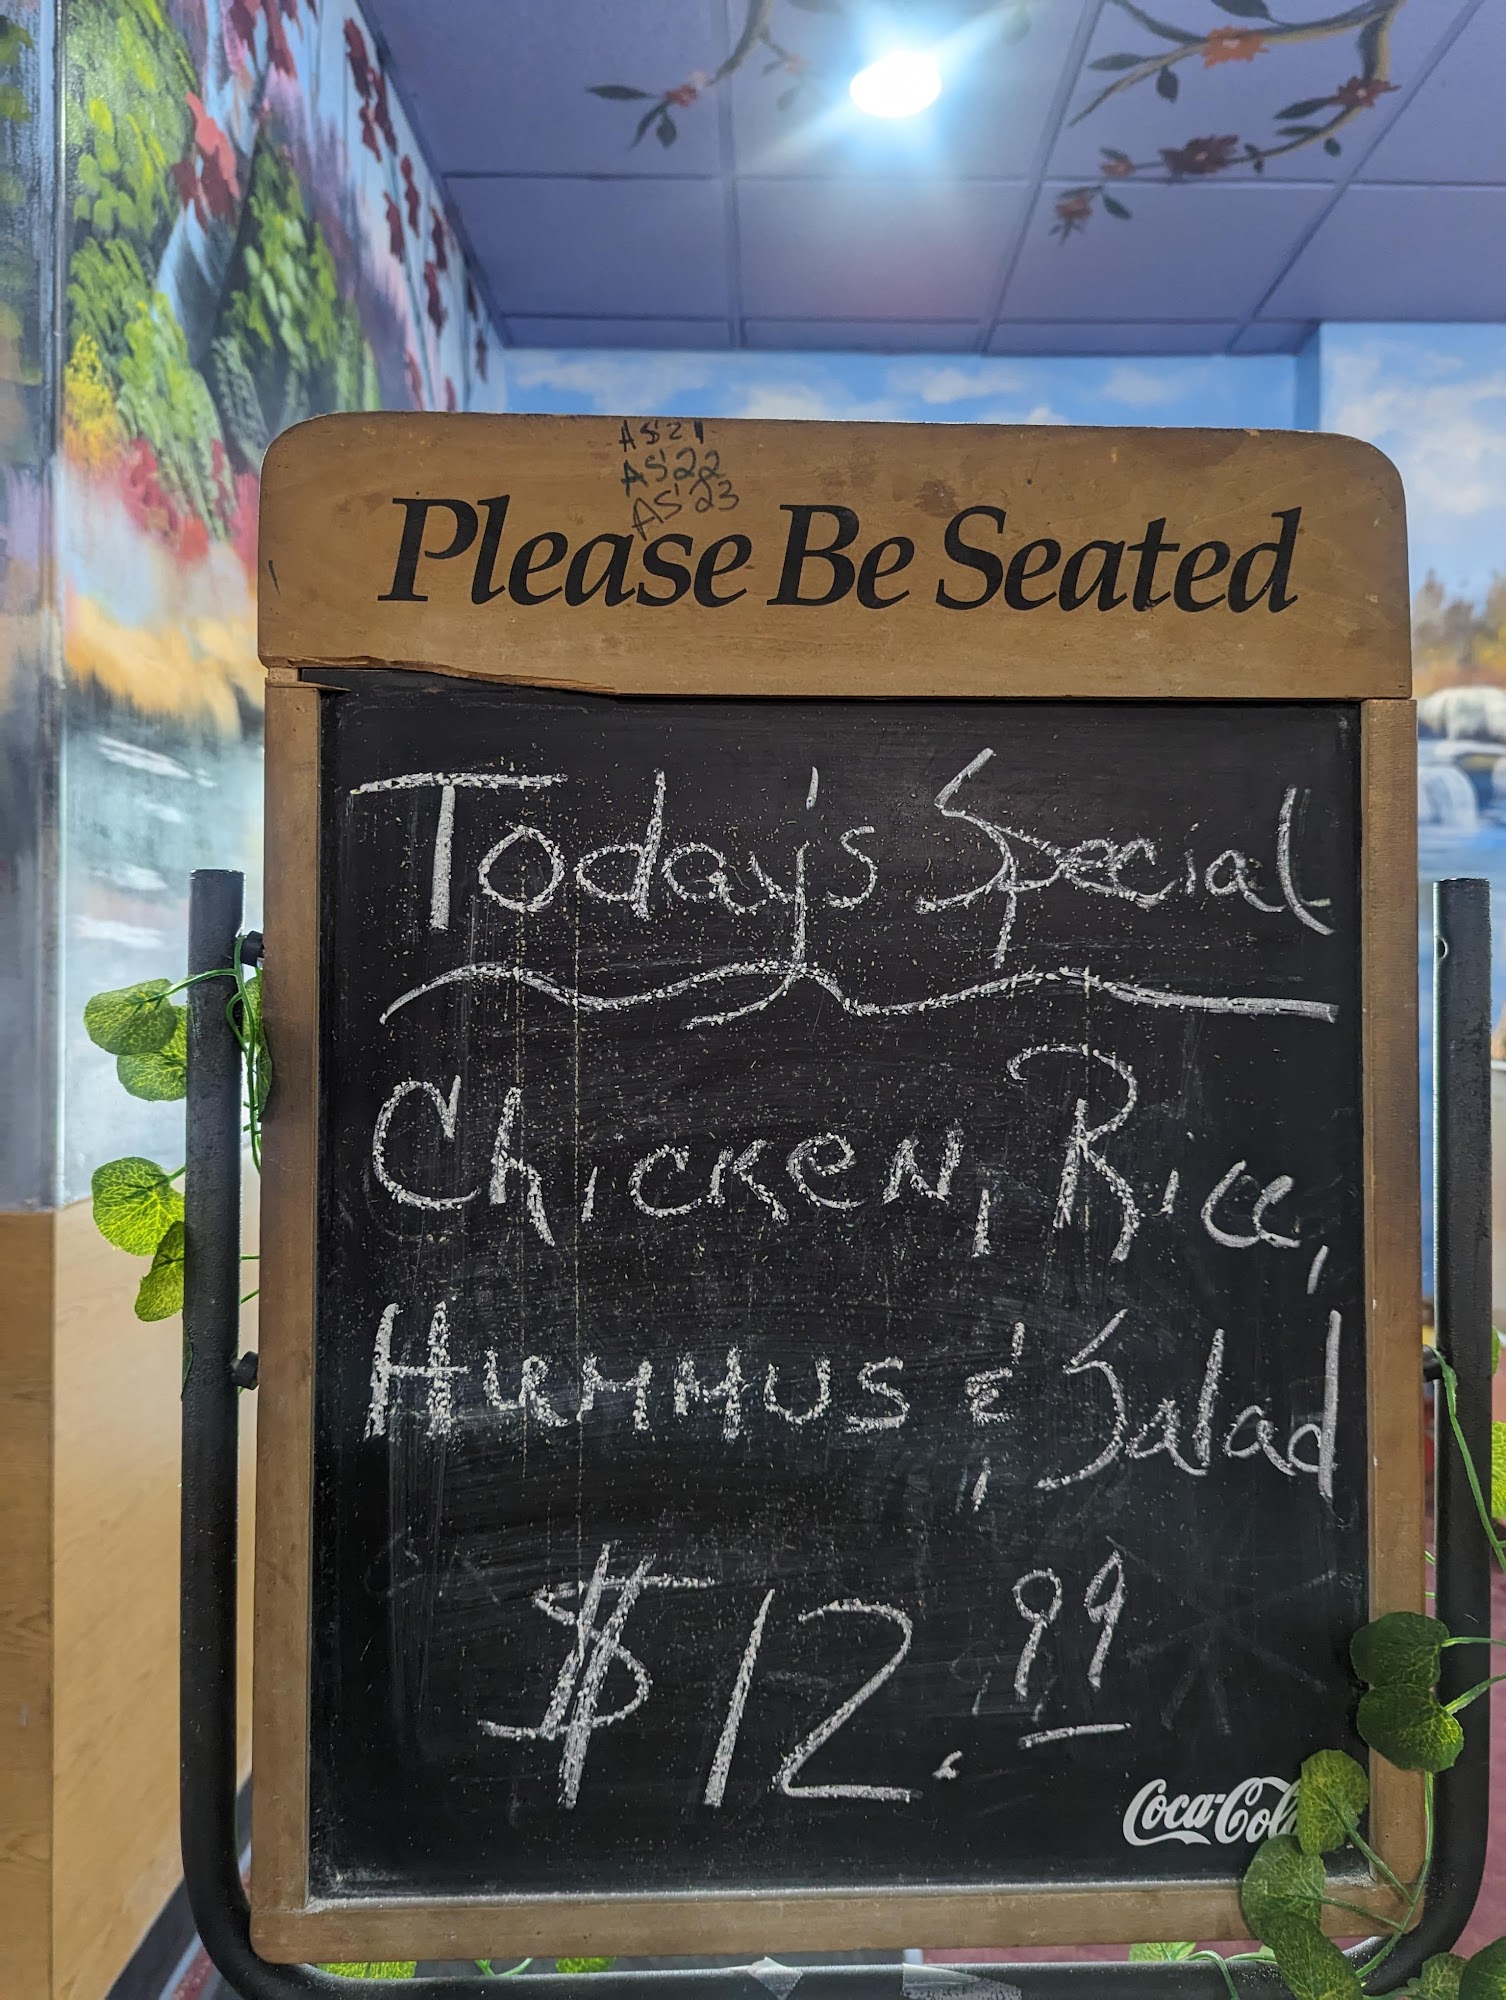 AS21
AS22
AS23
Please Be Seated
Today's Special
Chicken, Rice,
Hummus & Salad
$12.99
Coca-Cola